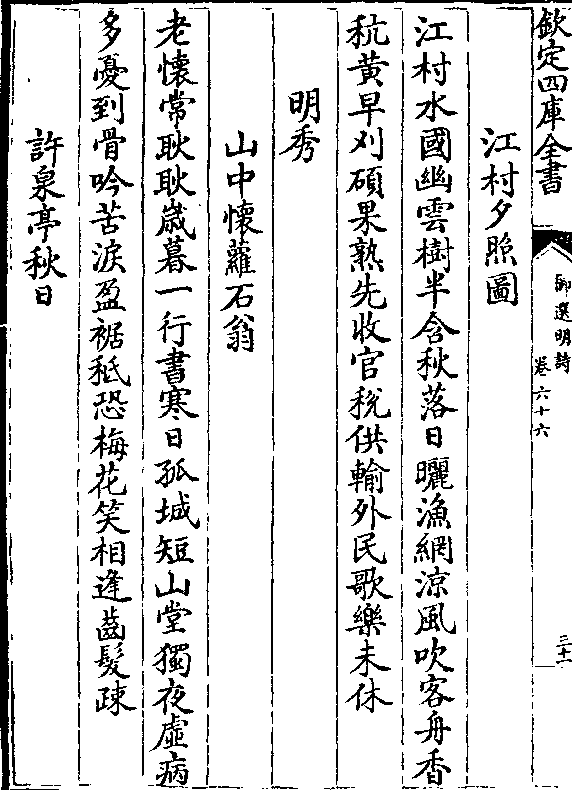 欽定四庫全書
御選明詩
卷六十六
三十一
江村夕照圖
江村水國幽雲樹半含秋落日曬漁網涼風吹客舟香
秔黃早刈碩果熟先收官稅供輸外民歌樂未休
明秀
山中懷蘿石翁
老懷常耿耿歲暮一行書寒日孤城短山堂獨夜虛病
多憂到骨吟苦淚盈裾秪恐梅花笑相逢齒髮疎
許泉亭秋日